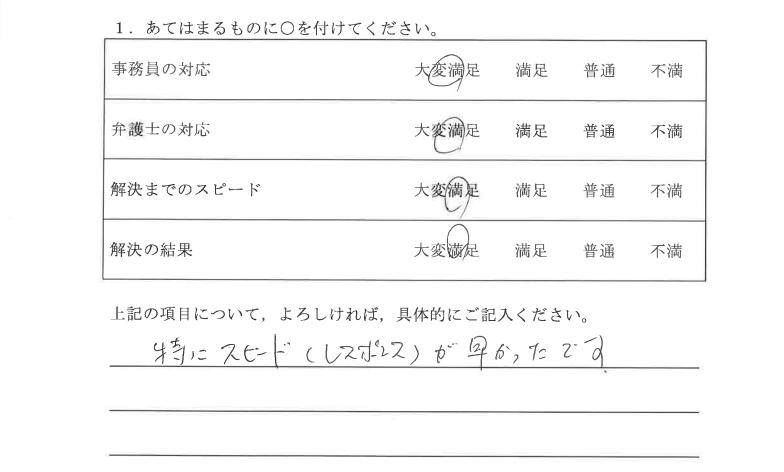 1．あてはまるものに○を付けてください。
事務員の対応 大変満足 満足 普通 不満
弁護士の対応 大変満足 満足 普通 不満
解決までのスピード 大変満足 満足 普通 不満
解決の結果 大変満足 満足 普通 不満
上記の項目について，よろしければ，具体的にご記入ください。
特にスピード（レスポンス）が早かったです．